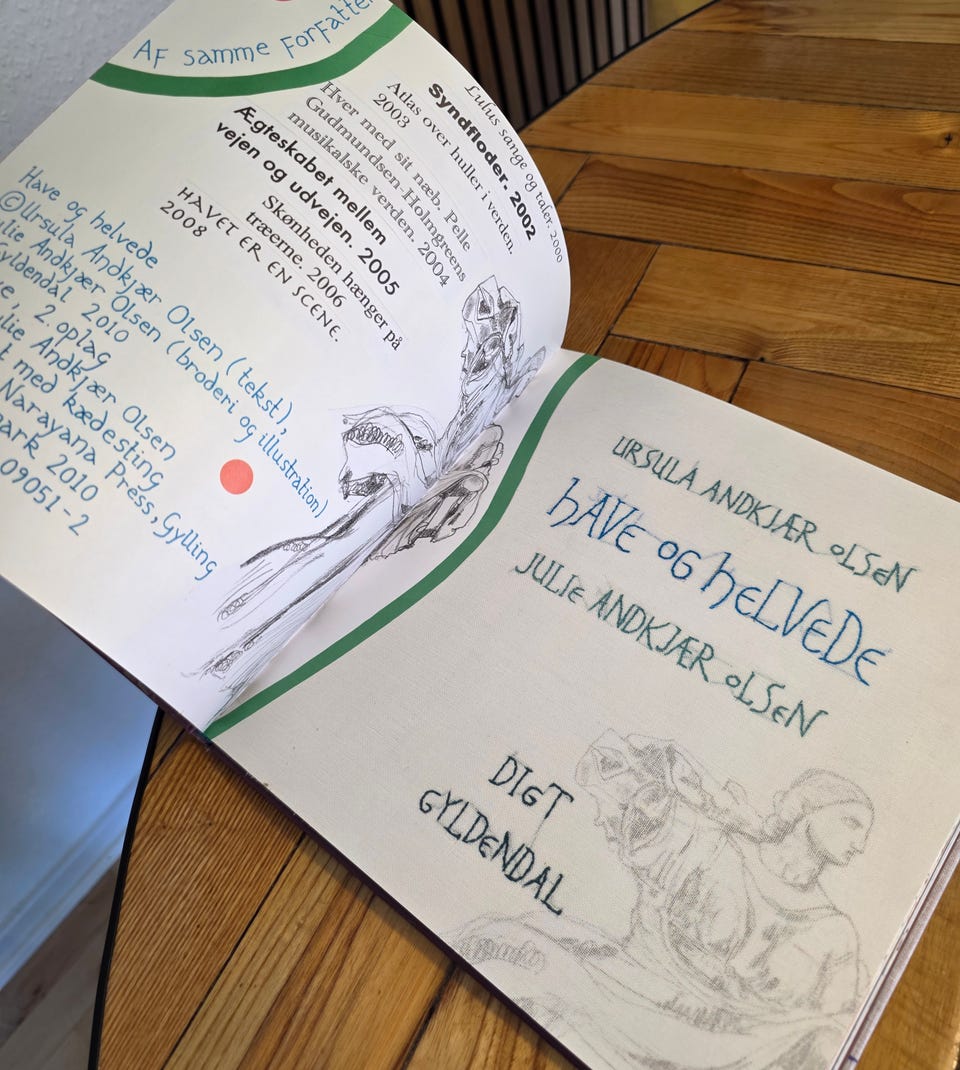 AF samme Forfatter
Lulus sange og taler. 2000
Syndfloder. 2002
Atlas over huller i verden.
2003
Hver med sit næb. Pelle
Gudmundsen-Holmgreens
musikalske verden. 2004
Ægteskabet mellem
vejen og udvejen. 2005
Skønheden hænger på
træerne. 2006
HAVET ER EN SCENE.
2008
Have og helvede
©Ursula Andkjær Olsen (tekst),
Andkjær Olsen (broderi og illustration)
Gyldendal 2010
2. oplag
Andkjær Olsen
med kædesting
Narayana Press, Gylling
2010
09051-2
URSULA ANDKJÆR OLSEN
HAVE OG HELVEDE
JULIE ANDKJÆR OLSEN
DIGT
GYLDENDAL